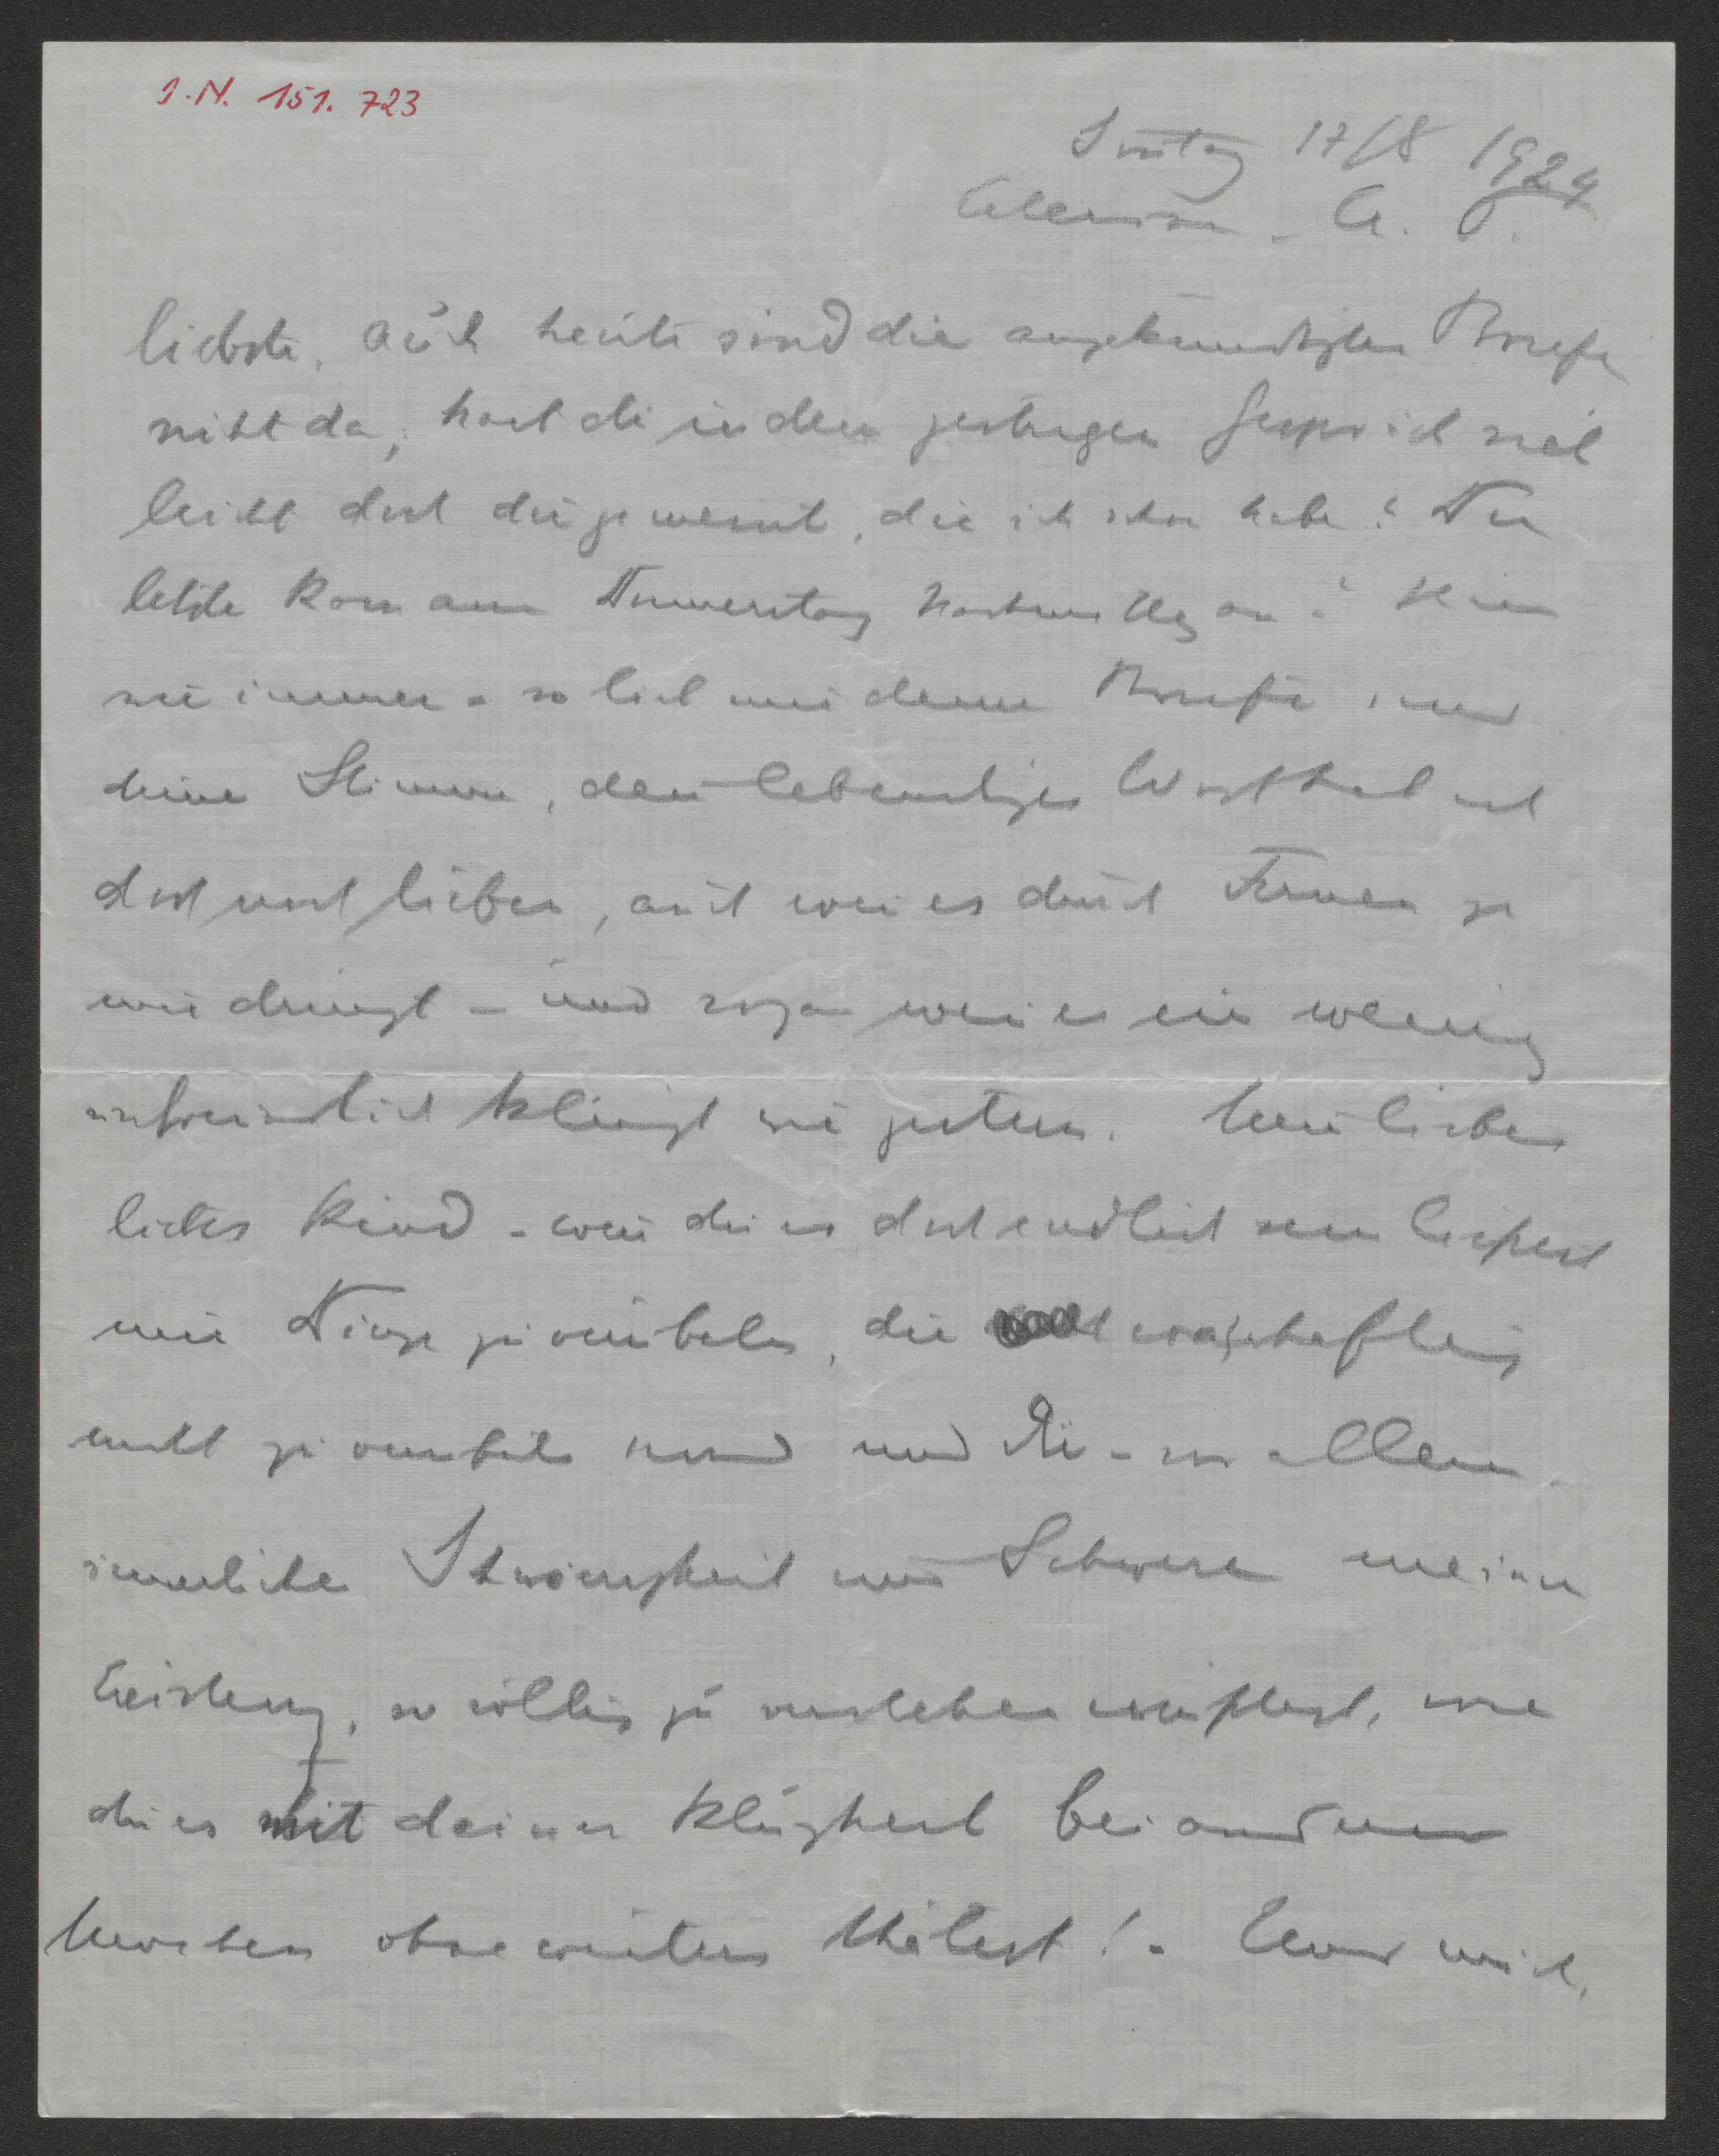 I.N. 151.723
Sonntag 17/8 1924
A.
liebste, auch heute sind die angekündigten Briefe
nicht da; hast du in dem gestrigen Gespräch viel
leicht doch die gemeint, die ich schon habe? Der
letzte kam am Donnerstag Nachmittag an.
wie immer – so lieb mir deine Briefe sind
deine Stimme, dein lebendiges Wort hab ich
doch noch lieber, auch wenn es durch Fernen zu
mir dringt – und sogar wenn es ein wenig
unfreundlich klingt wie gestern. Mein liebes
liebes Kind – wenn du es doch endlich sein ließest
mir Dinge zu verübeln, die wahrhaftig
nicht zu verübeln sind und die – vor allem
innerliche Schwierigkeit und Schwere meiner
so völlig zu verstehen wüßtest, wie
du es mit deiner Klugheit bei anderen
Menschen ohne weiters thätest! – Und mich,